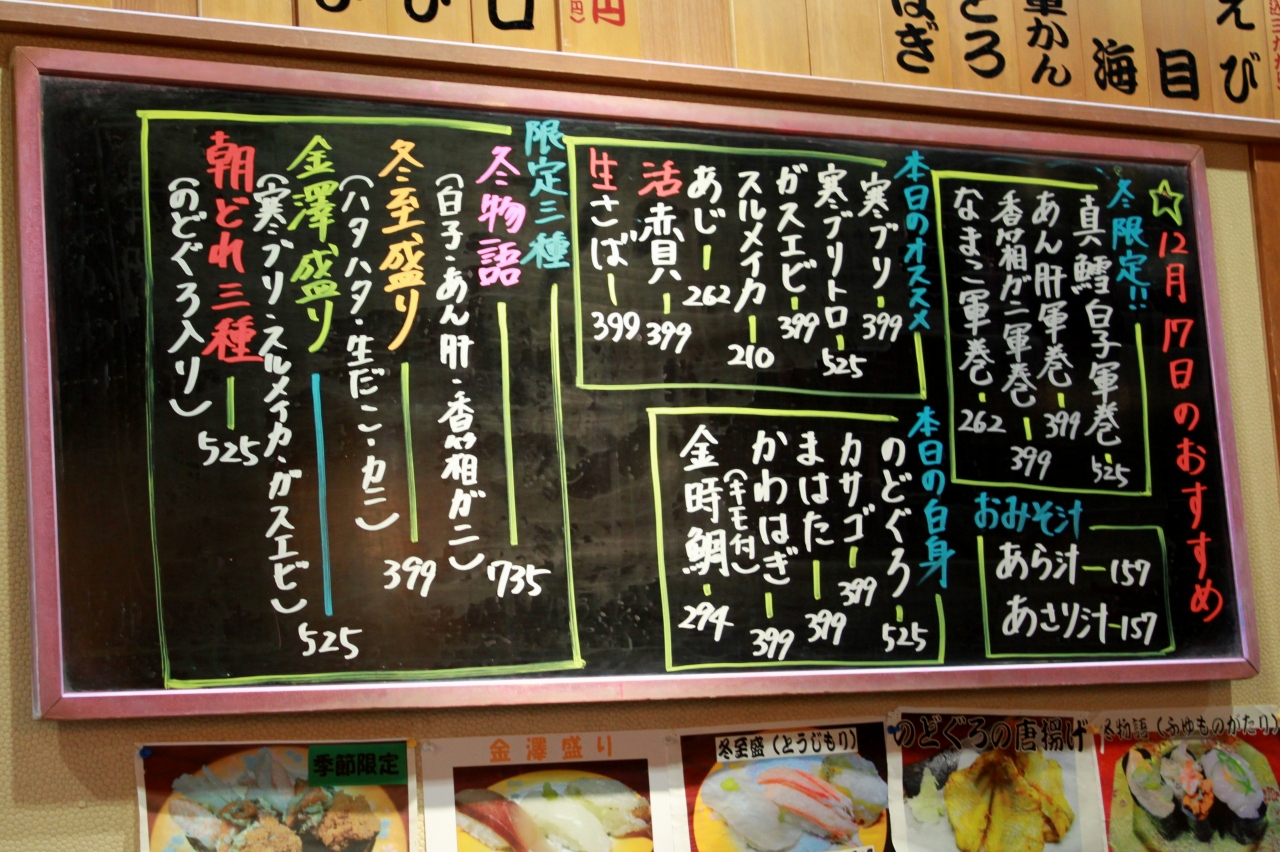 はぎ
とろ
軍かん
海
目
えび
円
☆12月17日のおすすめ
冬限定!!
真鱈白子軍巻 525
あん肝軍巻 399
香箱ガニ軍巻 399
なまこ軍巻 262
おみそ汁
あら汁 157
あさり汁 157
本日のオススメ
寒ブリ 399
寒ブリトロ 525
ガスエビ 399
スルメイカ 210
あじ 262
活赤貝 399
生さば 399
本日の白身
のどぐろ 525
カサゴ 399
まはた 399
かわはぎ 399
(キモ付)
金時鯛 294
限定三種
冬物語 735
(白子・あん肝・香箱ガニ)
冬至盛り 399
(ハタハタ・生だこ・カニ)
金澤盛り 525
(寒ブリ・スルメイカ・ガスエビ)
朝どれ三種 525
(のどぐろ入り)
季節限定
金澤盛り
冬至盛(とうじもり)
のどぐろの唐揚げ
冬物語(ふゆものがたり)